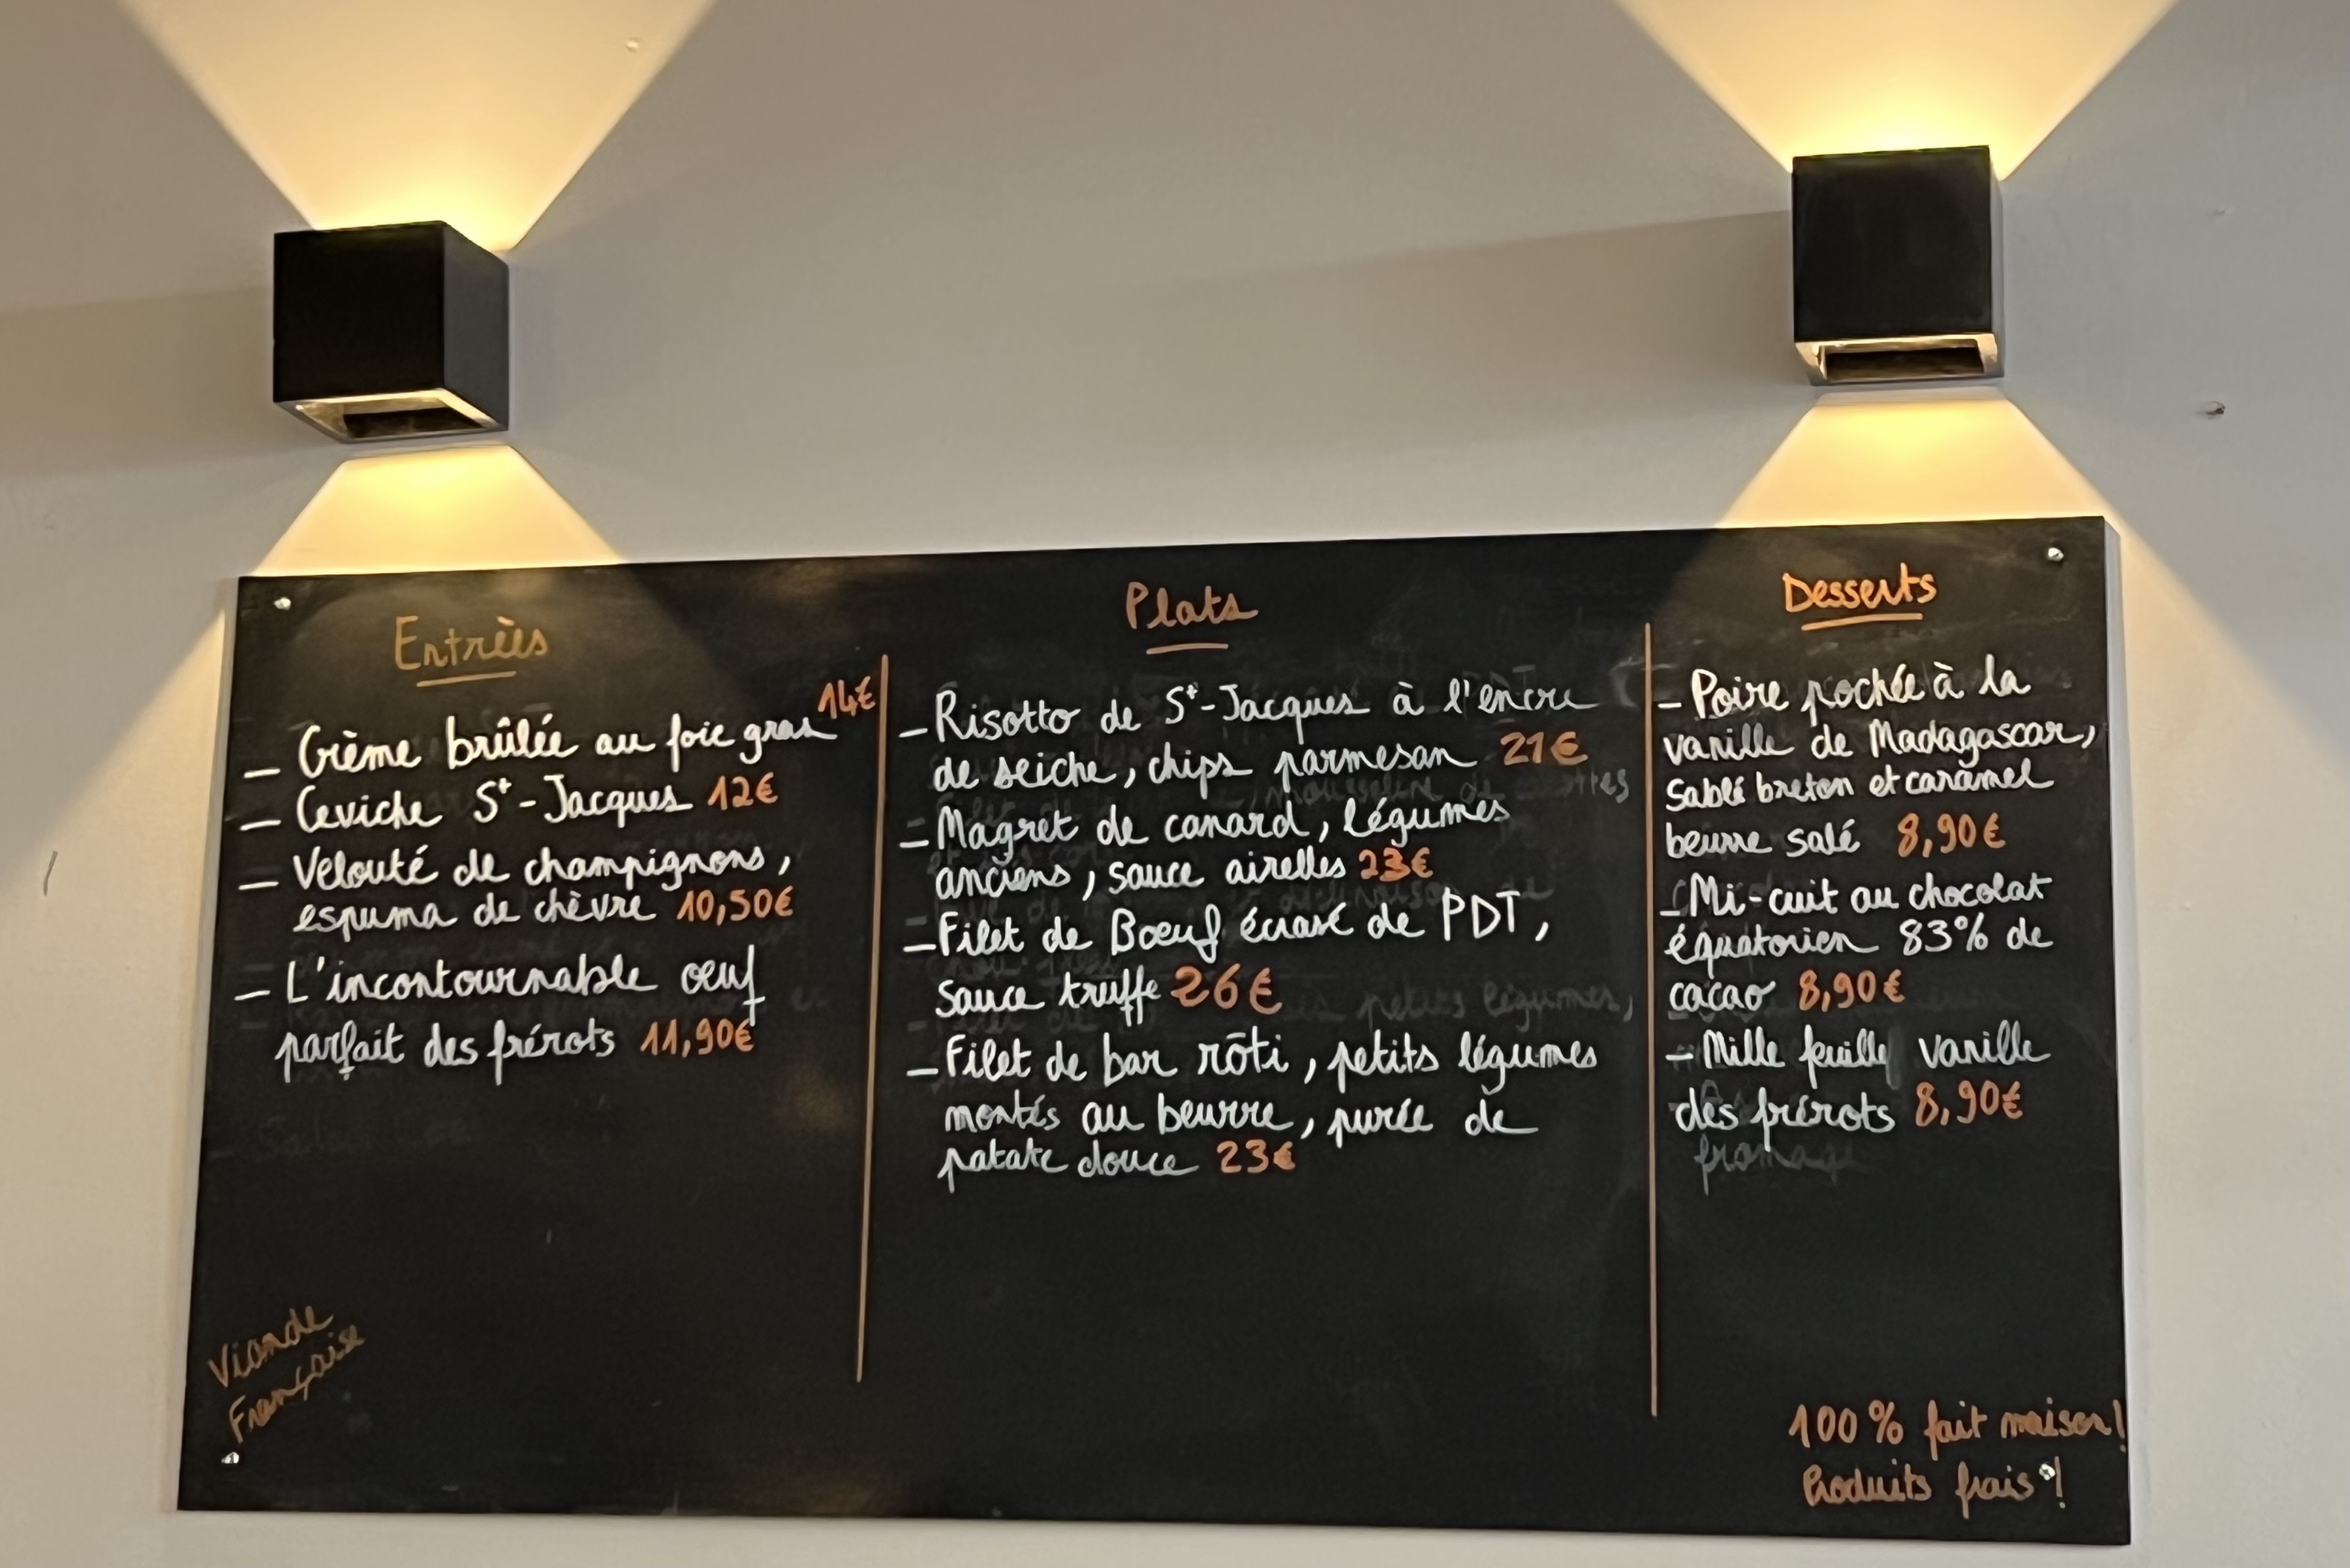 Entrées
14€
- Crème brûlée au foie gras
- Ceviche St-Jacques 12€
- Velouté de champignons,
espuma de chèvre 10,50€
- L'incontournable œuf
parfait des frérots 11,90€
Viande
Française
Plats
- Risotto de St-Jacques à l'encre
de seiche, chips parmesan 21€
- Magret de canard, légumes
anciens, sauce airelles 23€
- Filet de Bœuf écrasé de PDT,
sauce truffe 26€
- Filet de bar rôti, petits légumes
montés au beurre, purée de
patate douce 23€
Desserts
- Poire pochée à la
vanille de Madagascar,
Sablé breton et caramel
beurre salé 8,90€
- Mi-cuit au chocolat
équatorien 83% de
cacao 8,90€
- Mille feuille vanille
des frérots 8,90€
fromage
100% fait maison!
Produits frais!